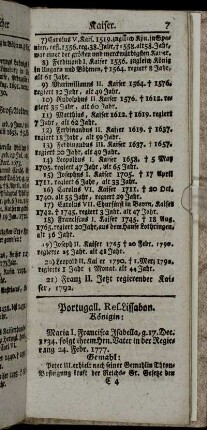 Kaiser. 7
7) Carolus V. Kais. 1519. zugleich Kön. in Spa-
nien, res. 1556. reg. 38. Jahr, † 1558. alt 58. Jahr,
war einer der größten und merkwürdigsten Kaiser.
8) Ferdinand I. Kaiser 1556. zugleich König
in Ungarn und Böhmen, † 1564. regiert 8 Jahr,
alt 61 Jahr.
9) Maximilianus II. Kaiser 1564. † 1576.
regiert 12 Jahr, alt 49 Jahr.
10) Rudolphus II Kaiser 1576. † 1612. re-
giert 35 Jahr, alt 60 Jahr.
11) Matthias, Kaiser 1612. † 1619. regiert
7 Jahr, alt 62 Jahr.
12) Ferdinandus II. Kaiser 1619. † 1637
regiert 18 Jahr, alt 59 Jahr.
13) Ferdinandus III. Kaiser 1637. † 1657.
regiert 20 Jahr, alt 49 Jahr.
14) Leopoldus I. Kaiser 1658. † 5 May
1705. regiert 47 Jahr, alt 65 Jahr.
15) Josephus I. Kaiser 1705. † 17 April
1711. regiert 6 Jahr, alt 33 Jahr.
16) Carolus VI. Kaiser 1711. † 20 Oct.
1740. alt 55 Jahr, regiert 29 Jahr.
17) Carolus VII. Churfürst in Beyern, Kaiser
1742. † 1745. regiert 3 Jahr, alt 47 Jahr.
18) Franciscus I. Kaiser 1745. † 18 Aug.
1765. regiert 20 Jahr, aus dem Hause Lothringen,
alt 56 Jahr.
19) Joseph II. Kaiser 1765 † 20 Febr. 1790.
regierte 25 Jahr, alt 49 Jahr.
20) Leopold II. Kaiser 1790. † 1. Merz 1792.
regierte 2 Jahr alt 44 Jahr.
21) Franz II. Jetzt regierender Kai-
ser, 1792.
Portugall. Res. Lissabon.
Königin:
Maria I. Francisca Isabella, g. 17. Dec.
1734. folgt ihrem Hrn. Vater in der Regie-
rung 24. Febr. 1777.
Gemahl:
Peter III. erhielt nach seiner Gemahlin Thron-
Besteigung kraft der Reichs Gr. Gesetze den
C 4